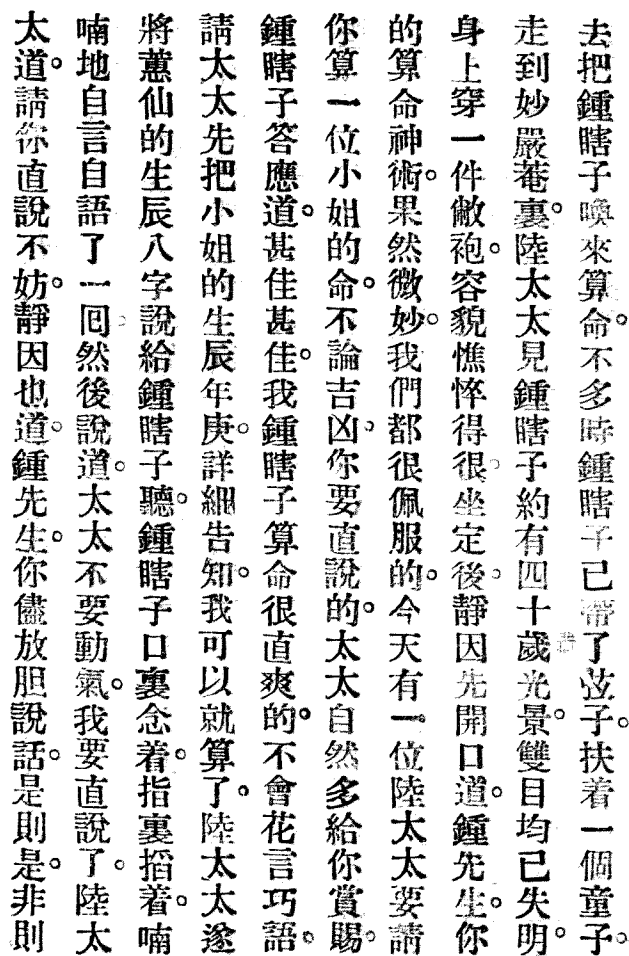 去把鍾瞎子喚來算命。不多時鍾瞎子已帶了弦子。扶着一個童子。
走到妙嚴菴裏。陸太太見鍾瞎子約有四十歲光景。雙目均已失明。
身上穿一件敝袍。容貌憔悴得很。坐定後。靜因先開口道。鍾先生。你
的算命神術。果然微妙。我們都很佩服的。今天有一位陸太太要請
你算一位小姐的命。不論吉凶。你要直說的。太太自然多給你賞賜。
鍾瞎子答應道。甚佳甚佳。我鍾瞎子算命很直爽的。不會花言巧語。
請太太先把小姐的生辰年庚。詳細告知。我可以就算了。陸太太遂
將蕙仙的生辰八字說給鍾瞎子聽。鍾瞎子口裏念着。指裏搯着。喃
喃地自言自語了一囘。然後說道。太太不要動氣。我要直說了。陸太
太道。請你直說不妨。靜因也道。鍾先生。你儘放胆說話。是則是。非則